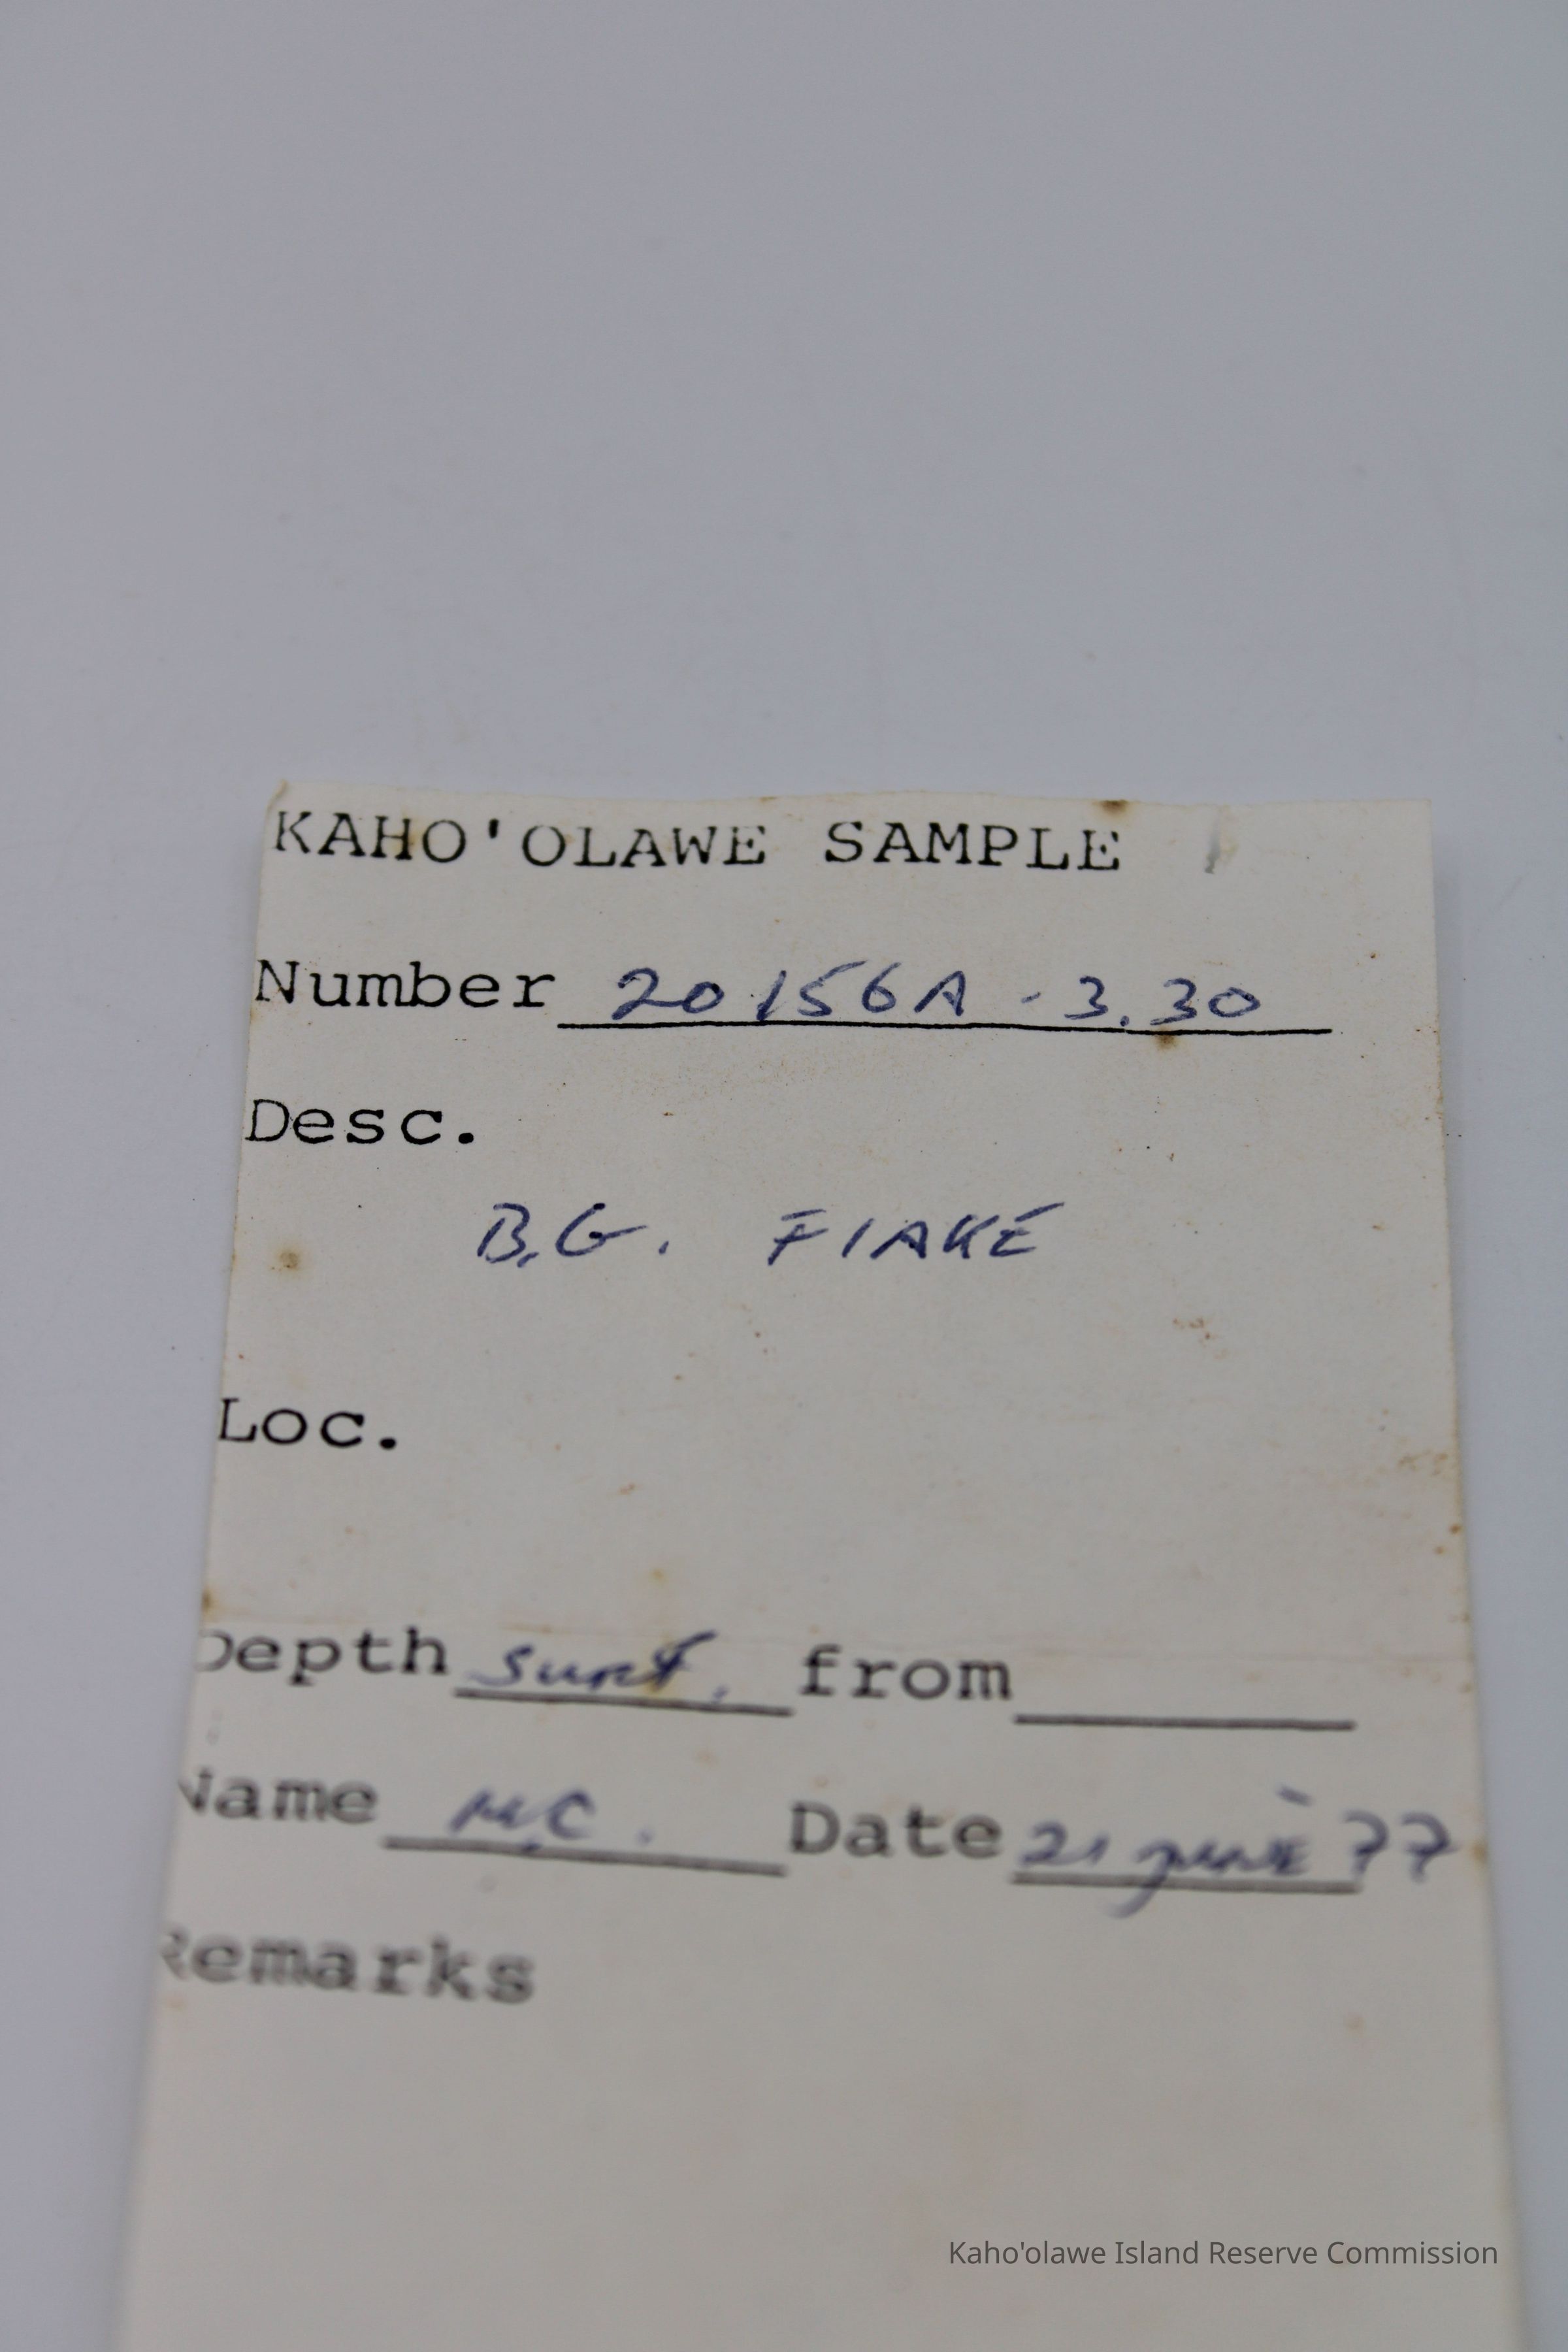 KAHO'OLAWE SAMPLE
Number 20156A - 3.30
Desc.
B.G. FlAKE
Loc.
Depth Surf. from
Name M.C. Date 21 JUNE 77
Remarks
Kaho'olawe Island Reserve Commission